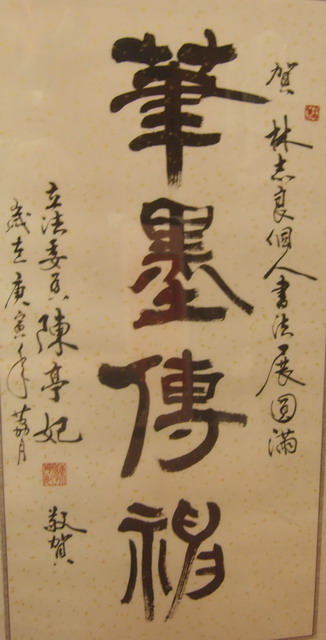 賀 林志良個人書法展圓滿
筆墨傳神
立法委員陳亭妃 敬賀
歲在庚寅年荔月